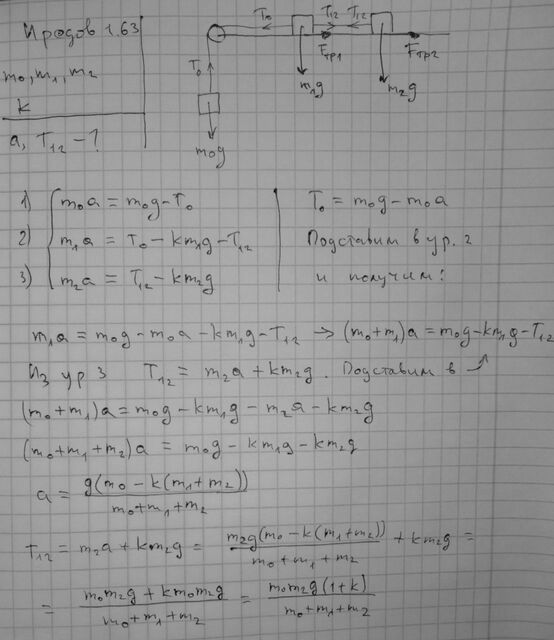 Иродов 1.63
m₀, m₁, m₂
k
a, T₁₂ - ?
T₀ T₁₂ T₁₂
T₀ Fтр1 Fтр2
m₁g m₂g
m₀g
1) m₀a = m₀g - T₀
2) m₁a = T₀ - km₁g - T₁₂
3) m₂a = T₁₂ - km₂g
T₀ = m₀g - m₀a
Подставим в ур. 2
и получим:
m₁a = m₀g - m₀a - km₁g - T₁₂ → (m₀+m₁)a = m₀g - km₁g - T₁₂
Из ур 3 T₁₂ = m₂a + km₂g. Подставим в
(m₀+m₁)a = m₀g - km₁g - m₂a - km₂g
(m₀+m₁+m₂)a = m₀g - km₁g - km₂g
a = g(m₀ - k(m₁+m₂)) / m₀+m₁+m₂
T₁₂ = m₂a + km₂g = m₂g(m₀ - k(m₁+m₂)) / m₀+m₁+m₂ + km₂g =
= m₀m₂g + km₀m₂g / m₀+m₁+m₂ = m₀m₂g(1+k) / m₀+m₁+m₂